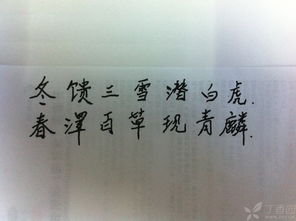 冬馈三雪潜白虎.
春泽百草现青麟.
丁香园